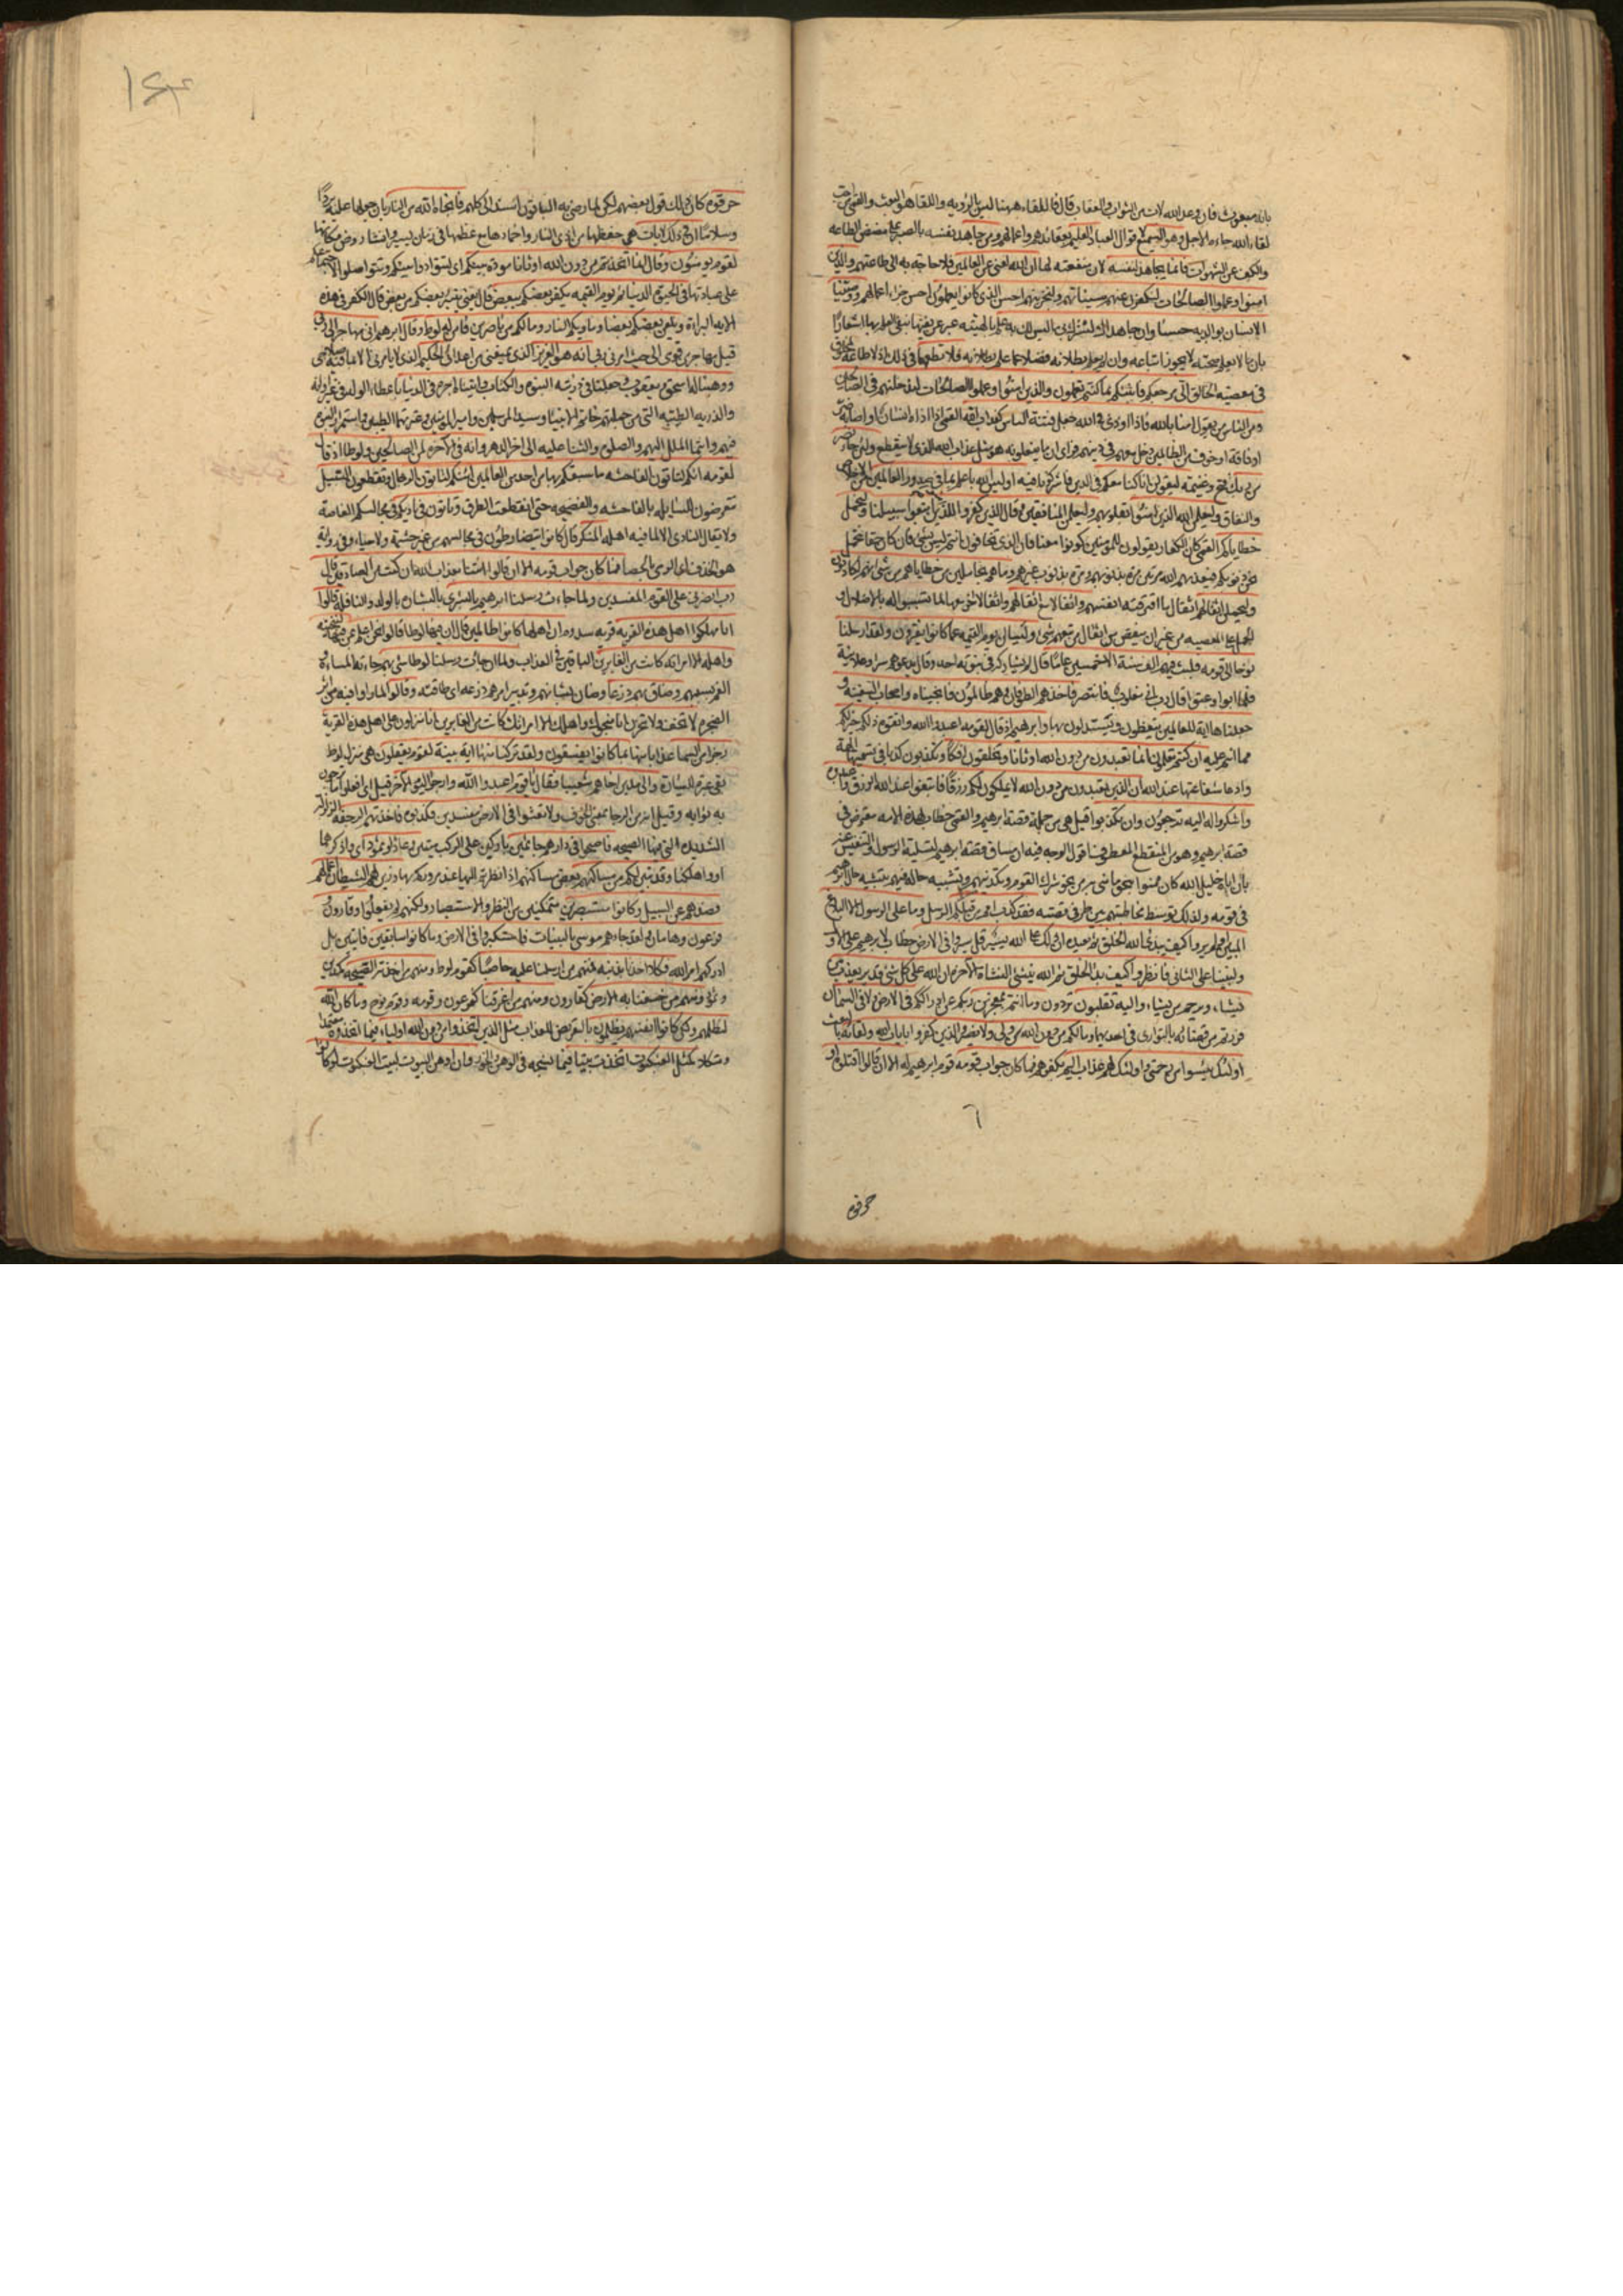 بانه مبعوث فان وعد الله لات من الثواب والعقاب قال فاللقاء ههنا ليس بالرؤيه واللقاء هو البعث والقمى من احب
لقاء الله جاءه الاجل وهو السميع لاقوال العباد العليم بعقائدهم واعمالهم ومن جاهد نفسه بالصبر على مضض الطاعه
والكف عن الشهوات فانما يجاهد لنفسه لان منفعته لها ان الله لغنى عن العالمين فلا حاجة به الى طاعتهم والذين
امنوا وعملوا الصالحات لنكفرن عنهم سيئاتهم ولنجزينهم احسن الذى كانوا يعملون احسن جزاء اعمالهم ووصينا
الانسان بوالديه حسنا وان جاهداك لتشرك بى ما ليس لك به علم بالهيته عبر عن نفيها بنفى العلم بها اشعارا
بان ما لا يعلم صحته لا يجوز اتباعه وان لم يعلم بطلانه فضلا عما علم بطلانه فلا تطعهما فى ذلك اذ لا طاعة لمخلوق
فى معصية الخالق الى مرجعكم فانبئكم بما كنتم تعملون والذين امنوا وعملوا الصالحات لندخلنهم فى الصالحين
ومن الناس من يقول امنا بالله فاذا اوذى فى الله جعل فتنة الناس كعذاب الله القمى اذا اذاه انسان او اصابه ضر
او فاقة او خوف من الظالمين دخل معهم فى دينهم فراى ان ما يفعلونه هو مثل عذاب الله الذى لا ينقطع ولئن جاء نصر
من ربك فتح وغنيمه ليقولن انا كنا معكم فى الدين فاشركونا فيه اوليس الله باعلم بما فى صدور العالمين من الاخلاص
والنفاق وليعلمن الله الذين امنوا بقلوبهم وليعلمن المنافقين وقال الذين كفروا للذين امنوا اتبعوا سبيلنا ولنحمل
خطاياكم القمى كان الكفار يقولون للمؤمنين كونوا معنا فان الذى تخافون انتم ليس بشئ فان كان حقا نتحمل
نحن ذنوبكم فيعذبهم الله مرتين مرة بذنوبهم ومرة بذنوب غيرهم وما هم بحاملين من خطاياهم من شئ انهم لكاذبون
وليحملن اثقالهم اثقال ما اقترفته انفسهم واثقالا مع اثقالهم واثقالا اخر معها لما تسببوا له بالاضلال و
الحمل على المعصيه من غير ان ينقص من اثقال من تبعهم شئ وليسئلن يوم القيمه عما كانوا يفترون ولقد ارسلنا
نوحا الى قومه فلبث فيهم الف سنة الا خمسين عاما قال لم يشاركه فى نبوته احد وقال يدعوهم سرا وعلانية
فلما ابوا وعتوا قال رب انى مغلوب فانتصر فاخذهم الطوفان وهم ظالمون فانجيناه واصحاب السفينة و
جعلناها اية للعالمين يتعظون ويستدلون بها وابرهيم اذ قال لقومه اعبدوا الله واتقوه ذلكم خير لكم
مما انتم عليه ان كنتم تعلمون انما تعبدون من دون الله اوثانا وتخلقون افكا وتكذبون كذبا فى تسميتها الهة
وادعاء شفاعتها عند الله ان الذين تعبدون من دون الله لا يملكون لكم رزقا فابتغوا عند الله الرزق واعبدوه
واشكروا له اليه ترجعون وان تكذبوا قيل هى من جملة قصة ابرهيم والقمى خطاب لهذه الامه معترض فى
قصة ابرهيم وهو من المنقطع المعطوف اقول الوجه فيه ان مساق قصة ابرهيم لتسلية الرسول والتنفيس عنه
بان اباه خليل الله كان ممنوا بنحو ما منى به من نحو شرك القوم وتكذيبهم وتشبيه حاله فيهم بتشبيه حال ابرهيم
فى قومه ولذلك توسط مخاطبتهم بين طرفى قصته فقد كذب امم من قبلكم الرسل وما على الرسول الا البلاغ
المبين اولم يروا كيف يبدئ الله الخلق ثم يعيده ان ذلك على الله يسير قل سيروا فى الارض خطاب لابرهيم على الاول
ولنبينا على الثانى فانظروا كيف بدأ الخلق ثم الله ينشئ النشاة الاخره ان الله على كل شئ قدير يعذب من
يشاء ويرحم من يشاء واليه تقلبون تردون وما انتم بمعجزين ربكم عن ادراككم فى الارض ولا فى السماء ان
فررتم من قضائه بالتوارى فى احديهما وما لكم من دون الله من ولى ولا نصير والذين كفروا بايات الله ولقائه بالبعث
اولئك يئسوا من رحمتى واولئك لهم عذاب اليم بكفرهم فما كان جواب قومه قوم ابرهيم له الا ان قالوا اقتلوه او
٦
حرقوه
حرقوه كان ذلك قول بعضهم لكن لما رضى به الباقون اسند الى كلهم فانجاه الله من النار بان جعلها عليه بردا
وسلاما ان فى ذلك لايات هى حفظها من اذى النار واخمادها مع عظمها فى زمان يسير وانشاء روض مكانها
لقوم يؤمنون وقال انما اتخذتم من دون الله اوثانا مودة بينكم اى لتتوادوا بينكم وتتواصلوا لاجتماعكم
على عبادتها فى الحيوة الدنيا ثم يوم القيمه يكفر بعضكم ببعض قال يعنى يتبرء بعضكم من بعض قال الكفر فى هذه
الايه البراءة ويلعن بعضكم بعضا وماويكم النار وما لكم من ناصرين فامن له لوط وقال ابرهيم انى مهاجر الى ربى
قيل مهاجر من قومى الى حيث امرنى ربى انه هو العزيز الذى يمنعنى من اعدائى الحكيم الذى لا يامرنى الا بما فيه صلاحى
ووهبنا له اسحق ويعقوب وجعلنا فى ذريته النبوة والكتاب واتيناه اجره فى الدنيا باعطاء الولد فى غير اوانه
والذرية الطيبه التى من جملتهم خاتم الانبيا وسيد المرسلين وامير المؤمنين وعترتهما الطيبين واستمرار النبوة
فيهم وانتماء الملل اليهم والصلوة والثناء عليه الى اخر الدهر وانه فى الاخره لمن الصالحين ولوطا اذ قال
لقومه انكم لتاتون الفاحشه ما سبقكم بها من احد من العالمين ائنكم لتاتون الرجال وتقطعون السبيل
تتعرضون للسابله بالفاحشه والفضيحه حتى انقطعت الطرق وتاتون فى ناديكم فى مجالسكم الغاصة
ولا يقال النادى الا لما فيه اهله المنكر قال كانوا يتضارطون فى مجالسهم من غير حشمة ولا حياء وفى رواية
هو الخذف اى الرمى بالحصا فما كان جواب قومه الا ان قالوا ائتنا بعذاب الله ان كنت من الصادقين قال
رب انصرنى على القوم المفسدين ولما جاءت رسلنا ابرهيم بالبشرى بالبشاره بالولد والنافله قالوا
انا مهلكوا اهل هذه القريه قرية سدوم ان اهلها كانوا ظالمين قال ان فيها لوطا قالوا نحن اعلم بمن فيها لننجينه
واهله الا امراته كانت من الغابرين الباقين فى العذاب ولما ان جائت رسلنا لوطا سئ بهم جاءته المساءة و
الغم بسببهم وضاق بهم ذرعا وضاق بشانهم وتدبير امرهم ذرعه اى طاقته وقالوا لما راوا فيه من اثر
الضجره لا تخف ولا تحزن انا منجوك واهلك الا امراتك كانت من الغابرين انا منزلون على اهل هذه القرية
رجزا من السماء عذابا منها بما كانوا يفسقون ولقد تركنا منها اية بينة لقوم يعقلون هى منزل لوط
بقى عبرة للسيارة والى مدين اخاهم شعيبا فقال يا قوم اعبدوا الله وارجوا اليوم الاخر قيل اى افعلوا ما ترجون
به ثوابه وقيل انه من الرجاء بمعنى الخوف ولا تعثوا فى الارض مفسدين فكذبوه فاخذتهم الرجفه الزلزلة
الشديده التى فيها الصيحه فاصبحوا فى دارهم جاثمين باركين على الركب ميتين وعادا وثمود اى واذكرهما
او واهلكنا وقد تبين لكم من مساكنهم بعض مساكنهم اذا نظرتم اليها عند مروركم بها وزين لهم الشيطان اعمالهم
فصدهم عن السبيل وكانوا مستبصرين متمكنين من النظر والاستبصار ولكنهم لم يفعلوا وقارون
وفرعون وهامان ولقد جاءهم موسى بالبينات فاستكبروا فى الارض وما كانوا سابقين فايتين بل
ادركهم امر الله فكلا اخذنا بذنبه فمنهم من ارسلنا عليه حاصبا كقوم لوط ومنهم من اخذته الصيحه كمدين
وثمود ومنهم من خسفنا به الارض كقارون ومنهم من اغرقنا كفرعون وقومه وقوم نوح وما كان الله
ليظلمهم ولكن كانوا انفسهم يظلمون بالتعريض للعذاب مثل الذين اتخذوا من دون الله اولياء فيما اتخذوه معتمدا
ومتكلا كمثل العنكبوت اتخذت بيتا فيما نسجه فى الوهن والخور وان اوهن البيوت لبيت العنكبوت لو كانوا